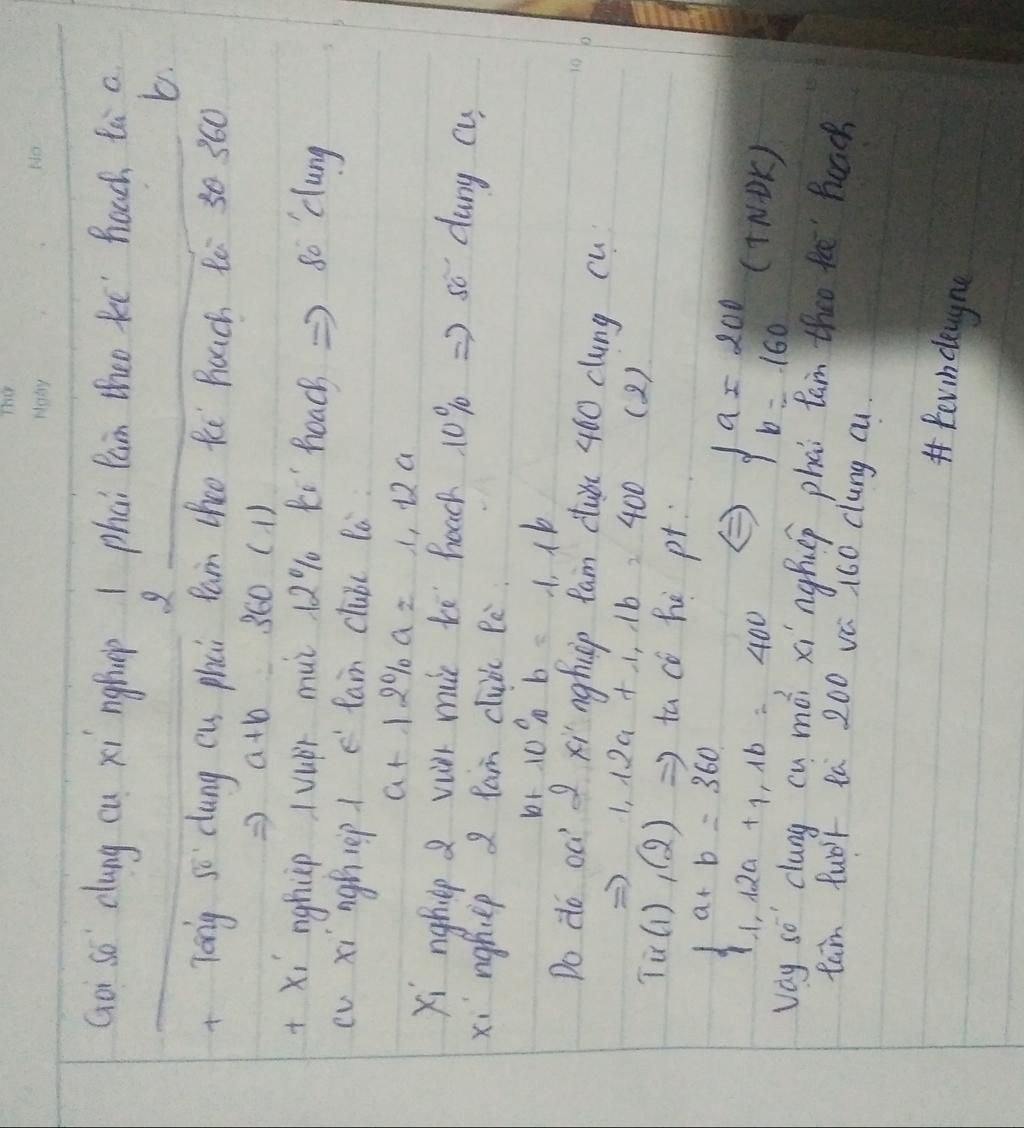 Thứ
Ngày
No.
Gọi số dụng cụ xí nghiệp 1 phải làm theo kế hoạch là a
2 b.
+ Tổng số dung cụ phải làm theo kế hoạch là 360
=> a+b = 360 (1)
+ Xí nghiệp 1 vượt mức 12% kế hoạch => số dụng
cụ xí nghiệp 1 làm được là:
a + 12% a = 1,12a
Xí nghiệp 2 vượt mức kế hoạch 10% => số dụng cụ
xí nghiệp 2 làm được là:
b+ 10% b = 1,1b
Do đó 2 xí nghiệp làm được 400 dụng cụ:
=> 1,12a + 1,1b = 400 (2)
Từ (1),(2) => ta có hệ pt:
{ a + b = 360
1,12a + 1,1b = 400 <=> { a = 200
b = 160 (TNĐK)
Vậy số dung cụ mỗi xí nghiệp phải làm theo kế hoạch
lần lượt là 200 và 160 dụng cụ.
5
10
15